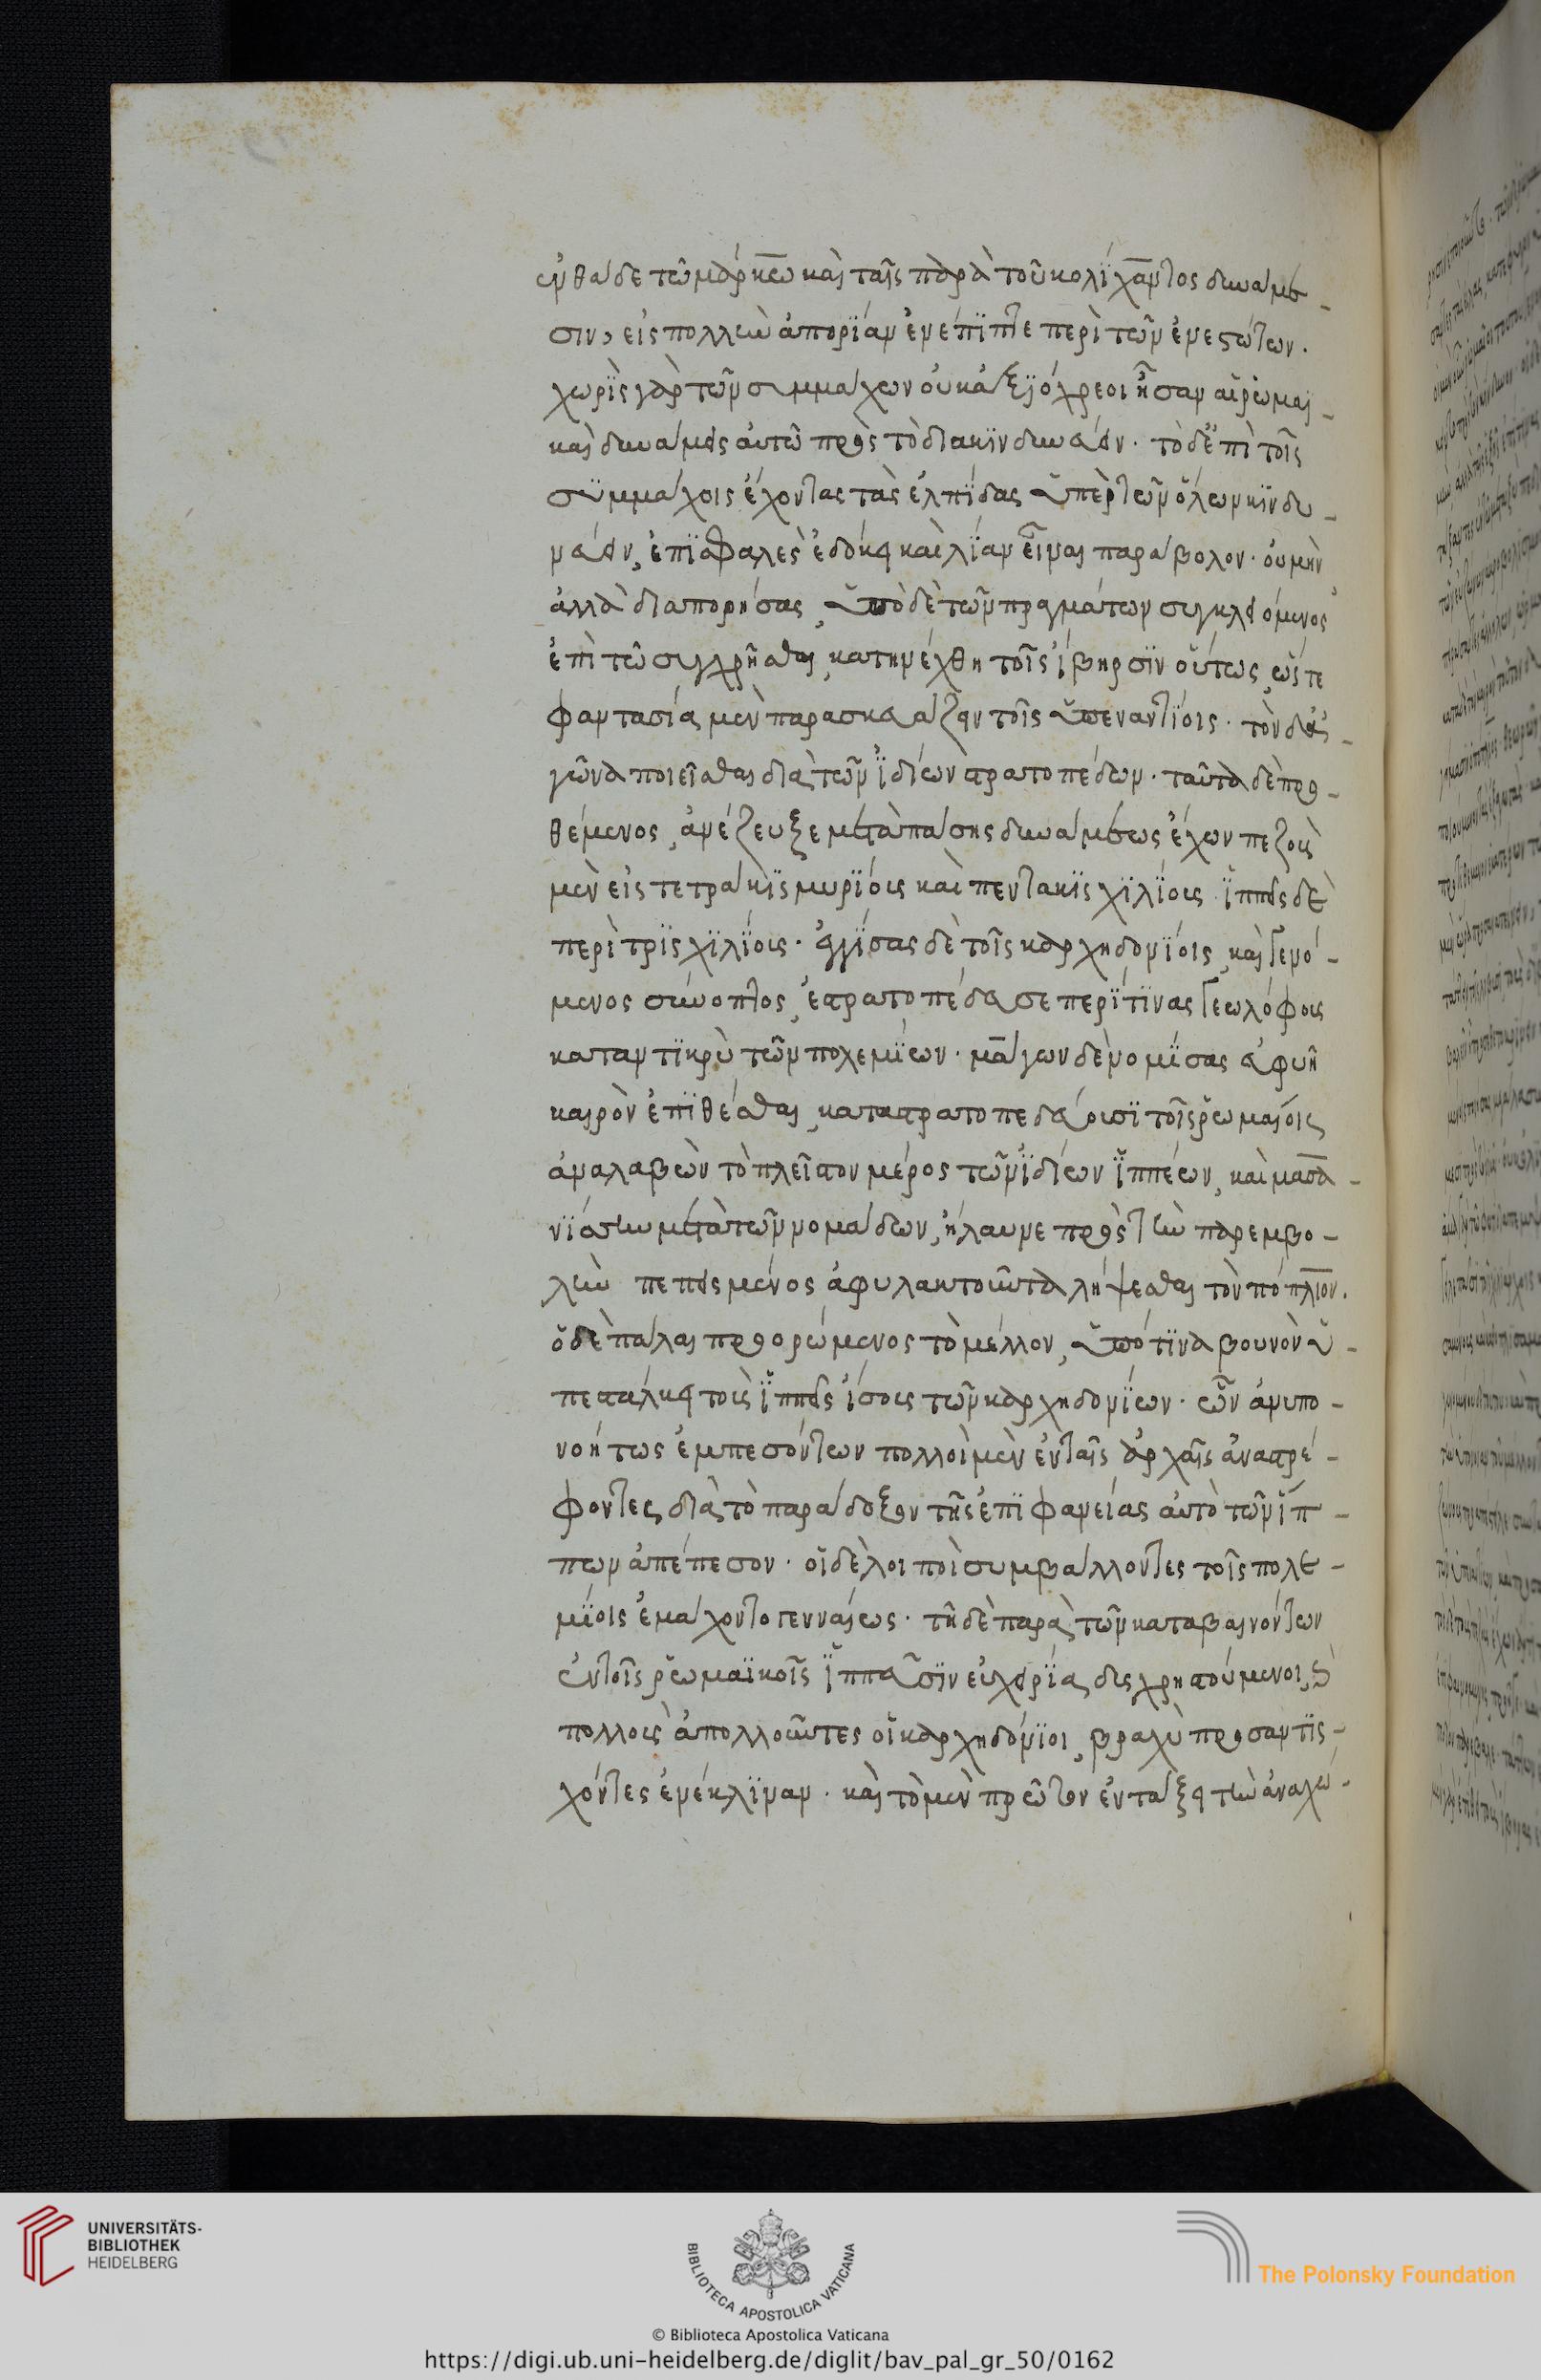 ενθάδε τῶ μάρκω καὶ ταῖς παρὰ τοῦ κολίχαντος δυνάμε-
σιν, εἰς πολλὴν ἀπορίαν ἐνέπιπτε περὶ τῶν ἐνεστώτων.
χωρὶς γὰρ τῶν συμμάχων οὐκ ἀξιόχρεοι ἦσαν αἱ ῥωμαϊ-
καὶ δυνάμεις αὐτῶ πρὸς τὸ διακινδυνεύειν. τὸ δ' ἐπὶ τοῖς
συμμάχοις ἔχοντας τὰς ἐλπίδας ὑπὲρ τῶν ὅλων κινδυ-
νεύειν, ἐπισφαλὲς ἐδόκει καὶ λίαν εἶναι παράβολον. οὐ μὴν
ἀλλὰ διαπορήσας, ὑπὸ δὲ τῶν πραγμάτων συγκλειόμενος
ἐπὶ τῶ συγχρῆσθαι, κατηνέχθη τοῖς ἴβηρσιν οὕτως, ὥστε
φαντασίαν μὲν παρασκευάζειν τοῖς ὑπεναντίοις. τὸν δ' ἀ-
γῶνα ποιεῖσθαι διὰ τῶν ἰδίων στρατοπέδων. ταῦτα δὲ προ-
θέμενος, ἀνέζευξε μετὰ πάσης δυνάμεως ἔχων πεζοὺς
μὲν εἰς τετρακισμυρίους καὶ πεντακισχιλίους ἱππεῖς δὲ
περὶ τρισχιλίους. ἐγγίσας δὲ τοῖς καρχηδονίοις, καὶ γενό-
μενος σύνοπτος, ἐστρατοπέδευσε περί τινας γεωλόφους
καταντικρὺ τῶν πολεμίων. μάγων δὲ νομίσας εὐφυῆ
καιρὸν ἐπιθέσθαι, καταστρατοπεδεύουσι τοῖς ῥωμαίοις
ἀναλαβὼν τὸ πλεῖστον μέρος τῶν ἰδίων ἱππέων, καὶ μασσα-
νίασαν μετὰ τῶν νομάδων, ἤλαυνε πρὸς τὴν παρεμβο-
λὴν πεπεισμένος ἀφυλακτοῦντα λήψεσθαι τὸν πόπλιον.
ὁ δὲ πάλαι προορώμενος τὸ μέλλον, ὑπό τινα βουνὸν ὑ-
πεστάλκει τοὺς ἱππεῖς ἴσους τῶν καρχηδονίων. ὧν ἀνυπο-
νοήτως ἐμπεσόντων πολλοὶ μὲν ἐν ταῖς ἀρχαῖς ἀναστρέ-
φοντες διὰ τὸ παράδοξον τῆς ἐπιφανείας αὐτὸ τῶν ἵπ-
πων ἀπέπεσον. οἱ δὲ λοιποὶ συμβάλλοντες τοῖς πολε-
μίοις ἐμάχοντο γενναίως. τῆ δὲ παρὰ τῶν καταβαινόντων
ἐν τοῖς ῥωμαϊκοῖς ἱππεῦσιν εὐχειρία δισχρηστούμενοι, καὶ
πολλοὺς ἀπολλοῦντες οἱ καρχηδόνιοι, βραχὺ προσαντισ-
χόντες ἐνέκλιναν. καὶ τὸ μὲν πρῶτον ἐν τάξει τὴν ἀναχώ-
UNIVERSITÄTS-
BIBLIOTHEK
HEIDELBERG
BIBLIOTECA APOSTOLICA VATICANA
The Polonsky Foundation
© Biblioteca Apostolica Vaticana
https://digi.ub.uni-heidelberg.de/diglit/bav_pal_gr_50/0162